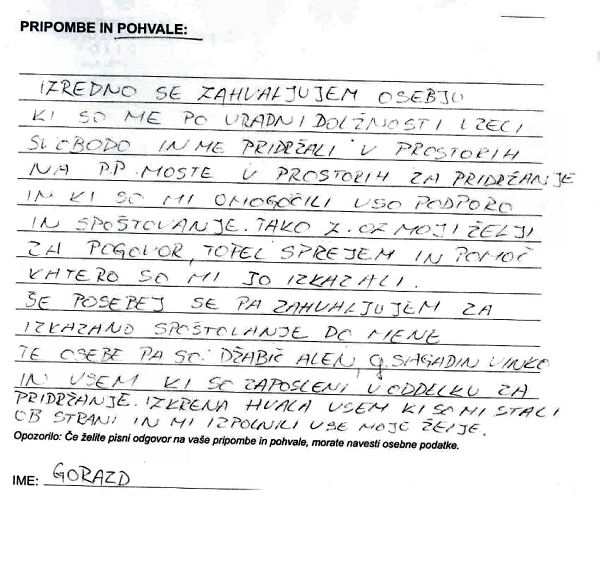 PRIPOMBE IN POHVALE:
IZREDNO SE ZAHVALJUJEM OSEBJU
KI SO ME PO URADNI DOLŽNOSTI VZELI
SVOBODO IN ME PRIDRŽALI V PROSTORIH
NA P.P. MOSTE V PROSTORIH ZA PRIDRŽANJE
IN KI SO MI OMOGOČILI VSO PODPORO
IN SPOŠTOVANJE. TAKO Z. OZ MOJI ŽELJI
ZA POGOVOR, TOPEL SPREJEM IN POMOČ
KATERO SO MI JO IZKAZALI.
ŠE POSEBEJ SE PA ZAHVALJUJEM ZA
IZKAZANO SPOŠTOVANJE DO MENE
TE OSEBE PA SO: DŽABIČ ALEN, g. SAGADIN VINKO
IN VSEM KI SO ZAPOSLENI V ODDELKU ZA
PRIDRŽANJE. IZKRENA HVALA VSEM KI SO MI STALI
OB STRANI IN MI IZPOLNILI VSE MOJE ŽELJE.
Opozorilo: Če želite pisni odgovor na vaše pripombe in pohvale, morate navesti osebne podatke.
IME: GORAZD